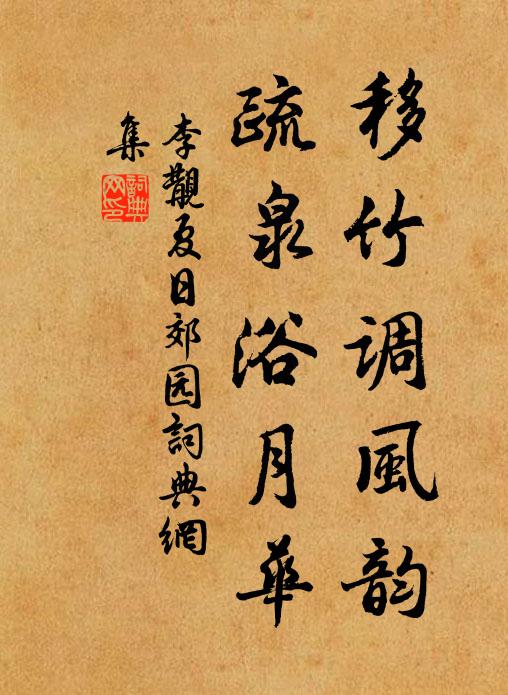 移竹调風韵
疏泉浴月華
李觏夏日郊园詞典網
集
詞典
网印